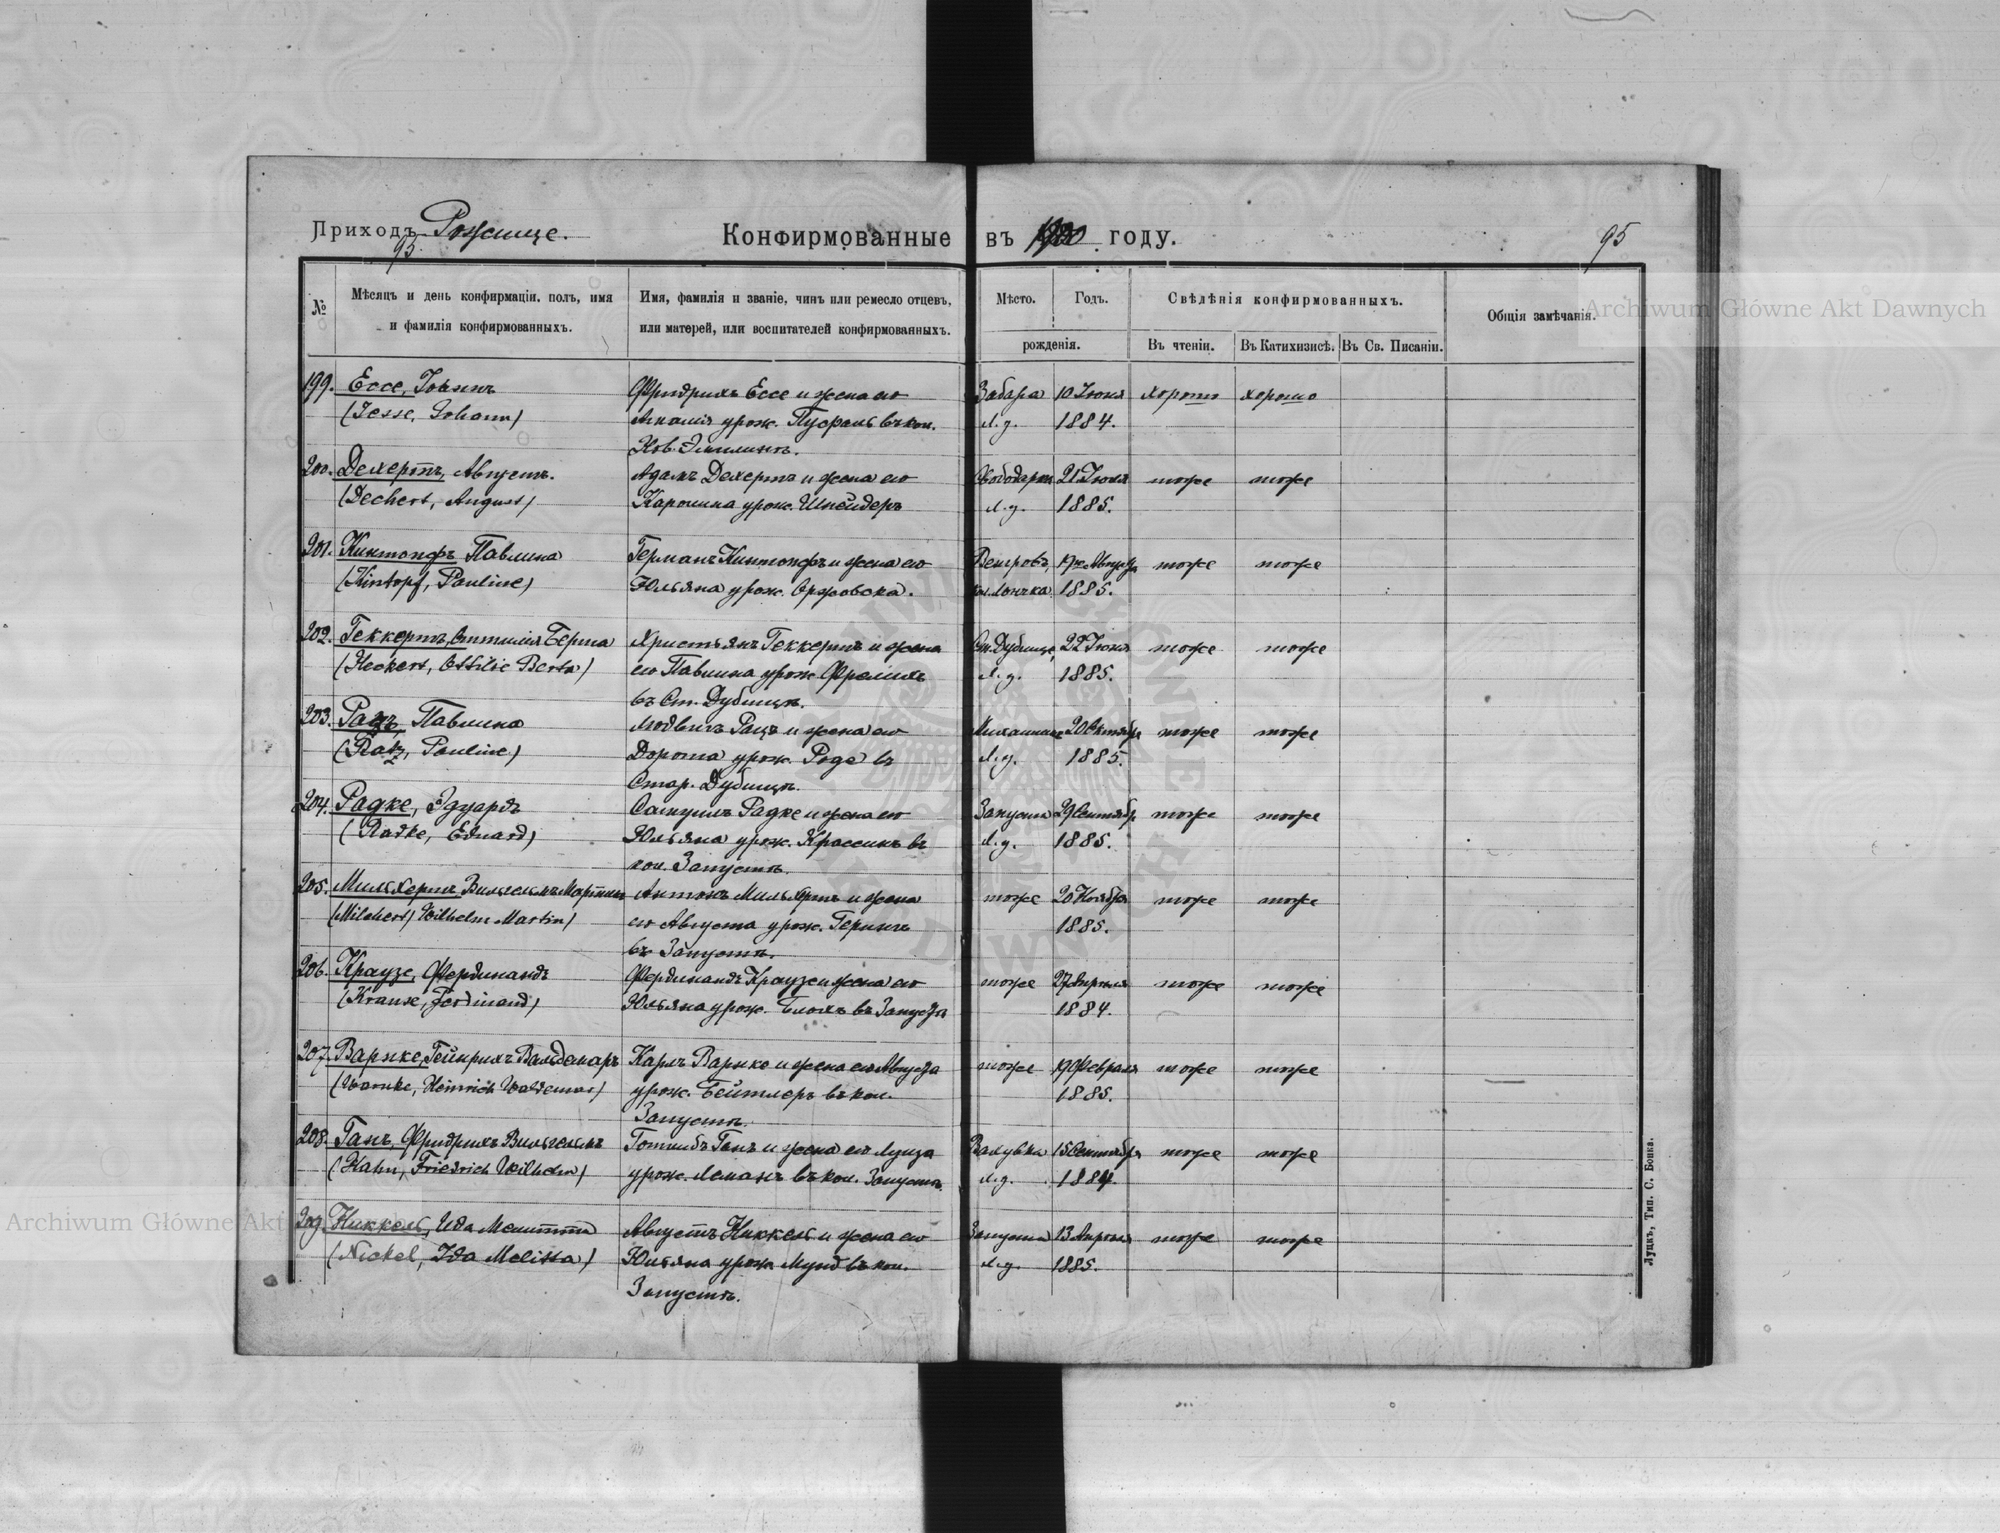 Приходъ Рожище.
Конфирмованные въ 1900 году.
95
95
№
Мѣсяцъ и день конфирмаціи, полъ, имя
и фамилія конфирмованныхъ.
Имя, фамилія и званіе, чинъ или ремесло отцевъ,
или матерей, или воспитателей конфирмованныхъ.
Мѣсто. Годъ.
рожденія.
Свѣдѣнія конфирмованныхъ.
Въ чтеніи. Въ Катихизисѣ. Въ Св. Писаніи.
Общія замѣчанія.
199. Ессе, Іоганъ Фридрихъ Ессе и жена его Забара 10 Іюня хорошо хорошо
(Jesse, Johann) Амалія урож. въ кол. Л. у. 1884.
200. Дехертъ, Августъ. Адамъ Дехертъ и жена его 21 Іюля тоже тоже
(Dechert, August) Каролина урож. Шнейдеръ Л. у. 1885.
201. Кинтопфъ Павлина Германъ Кинтопфъ и жена его Августа тоже тоже
(Kintopf, Pauline) Юльяна урож. 1885.
202. Геккертъ, Оттилія Берта Христьянъ Геккертъ и жена Ст. Дубище, 22 Іюня тоже тоже
(Heckert, Ottilie Berta) его Павлина урож. Л. у. 1885.
въ Ст. Дубищѣ.
203. Рацъ, Павлина Людвигъ Рацъ и жена его 20 Октября тоже тоже
(Ratz, Pauline) Дорота урож. Роде въ Л. у. 1885.
Стар. Дубищѣ.
204. Радке, Эдуардъ Самуилъ Радке и жена его Запуста 29 Сентябр. тоже тоже
(Radke, Eduard) Юльяна урож. Крассинъ въ Л. у. 1885.
кол. Запустѣ.
205. Мильхертъ, Вильгельмъ Мартинъ Антонъ Мильхертъ и жена тоже 20 Ноября тоже тоже
(Milchert, Wilhelm Martin) его Августа урож. Герингъ 1885.
въ Запустѣ.
206. Краузе, Фердинандъ Фердинандъ Краузе и жена его тоже 27 Апрѣля тоже тоже
(Krause, Ferdinand) Юльяна урож. въ Запустѣ 1884.
207. Варнке, Гейнрихъ Вальдемаръ Карлъ Варнке и жена его Августа тоже 19 Февраля тоже тоже
(Warnke, Heinrich Waldemar) урож. Бейтлеръ въ кол. 1885.
Запустѣ.
208. Ганъ, Фридрихъ Вильгельмъ Готлибъ Ганъ и жена его Луиза 15 Сентября тоже тоже
(Hahn, Friedrich Wilhelm) урож. Леманъ въ кол. Запустѣ. Л. у. 1884.
209. Никкель, Ида Августъ Никкель и жена его Запуста 13 Апрѣля тоже тоже
(Nickel, Ida Melissa) Юльяна урож. въ кол. Л. у. 1885.
Запустѣ.
Луцкъ, Тип. С. Бонка.
Archiwum Główne Akt Dawnych
Archiwum Główne Akt